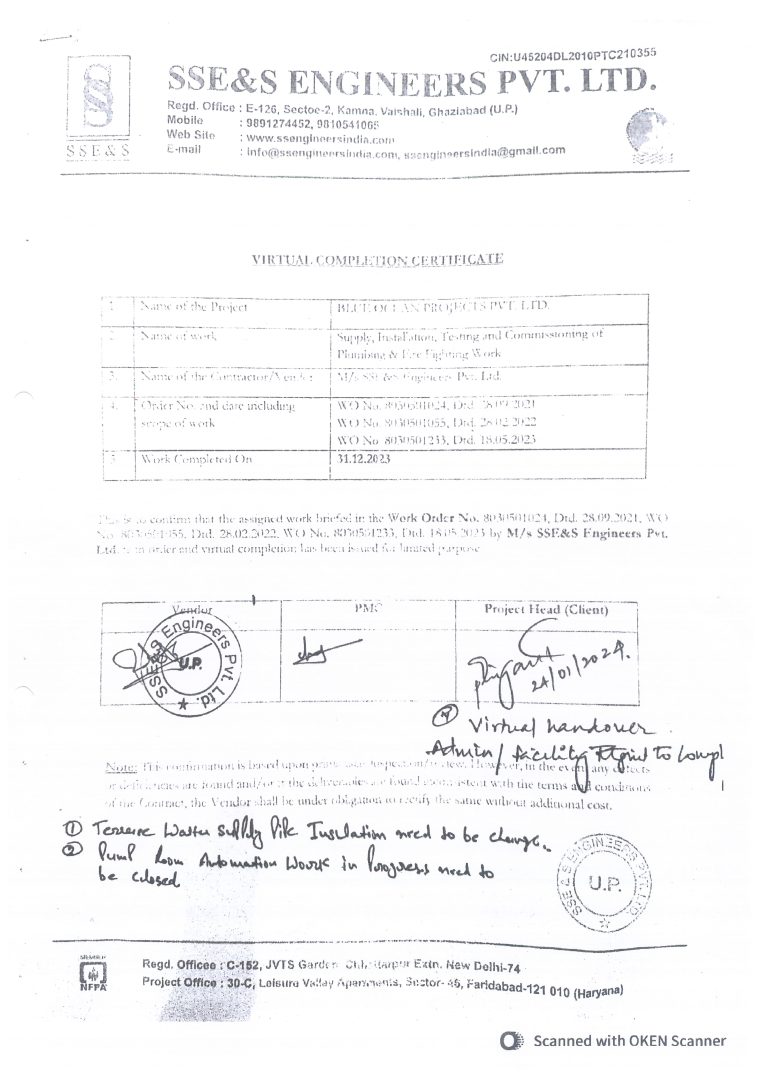 CIN:U45204DL2010PTC210355
SSE&S ENGINEERS PVT. LTD.
Regd. Office : E-126, Sectoe-2, Kamna, Vaishali, Ghaziabad (U.P.)
Mobile : 9891274452, 9810541065
Web Site : www.ssengineersindia.com
E-mail : info@ssengineersindia.com, ssengineersindia@gmail.com
SSE&S
VIRTUAL COMPLETION CERTIFICATE
1. Name of the Project BLUE OCEAN PROJECTS PVT. LTD.
2. Name of work Supply, Installation, Testing and Commissioning of
Plumbing & Fire Fighting Work
3. Name of the Contractor/Vender M/s SSE&S Engineers Pvt. Ltd.
4. Order No. and date including WO No. 8030501024, Dtd. 28.09.2021
scope of work WO No. 8030501055, Dtd. 28.02.2022
WO No. 8030501233, Dtd. 18.05.2023
5. Work Completed On 31.12.2023
This is to confirm that the assigned work briefed in the Work Order No. 8030501024, Dtd. 28.09.2021, WO
No. 8030501055, Dtd. 28.02.2022, WO No. 8030501233, Dtd. 18.05.2023 by M/s SSE&S Engineers Pvt.
Ltd. is in order and virtual completion has been issued for limited purpose
Vendor PMC Project Head (Client)
SSE&S Engineers Pvt. Ltd.
U.P.
24/01/2024.
Virtual handover
Admin / facility to
Note: This confirmation is based upon inspection/review. However, in the event any defects
or deficiencies are found and/or if the deliverables are found inconsistent with the terms and conditions
of the Contract, the Vendor shall be under obligation to rectify the same without additional cost.
① Terrece Watter Supply Pipe Insulation need to be change.
② Pump Room Automation Work in Progress need to
be closed
SSE & S ENGINEERS PVT. LTD.
U.P.
MEMBER
NFPA
Regd. Officee : C-152, JVTS Garden Chhattarpur Extn. New Delhi-74
Project Office : 30-C, Leisure Valley Apartments, Sector- 46, Faridabad-121 010 (Haryana)
Scanned with OKEN Scanner